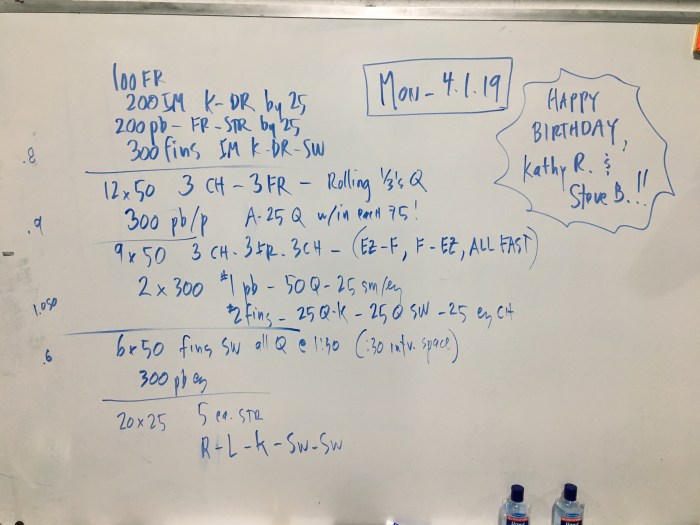 100 FR
200 IM K-DR by 25
200 pb - FR-STR by 25
300 fins IM K-DR-SW
.8
12x50 3 CH - 3 FR - Rolling 1/3's Q
300 pb/p A-25 Q w/in each 75!
.9
9x50 3 CH-3 FR-3 CH - (EZ-F, F-EZ, ALL FAST)
2x300 #1 pb - 50 Q - 25 sm/ey
#2 fins - 25 Q-K - 25 Q SW - 25 ey CH
1.050
6x50 fins SW all Q @ 1:30 (:30 intv. space)
300 pb ey
.6
20x25 5 ea. STR
R-L-K-SW-SW
Mon - 4.1.19
HAPPY
BIRTHDAY,
Kathy R. &
Steve B...!!